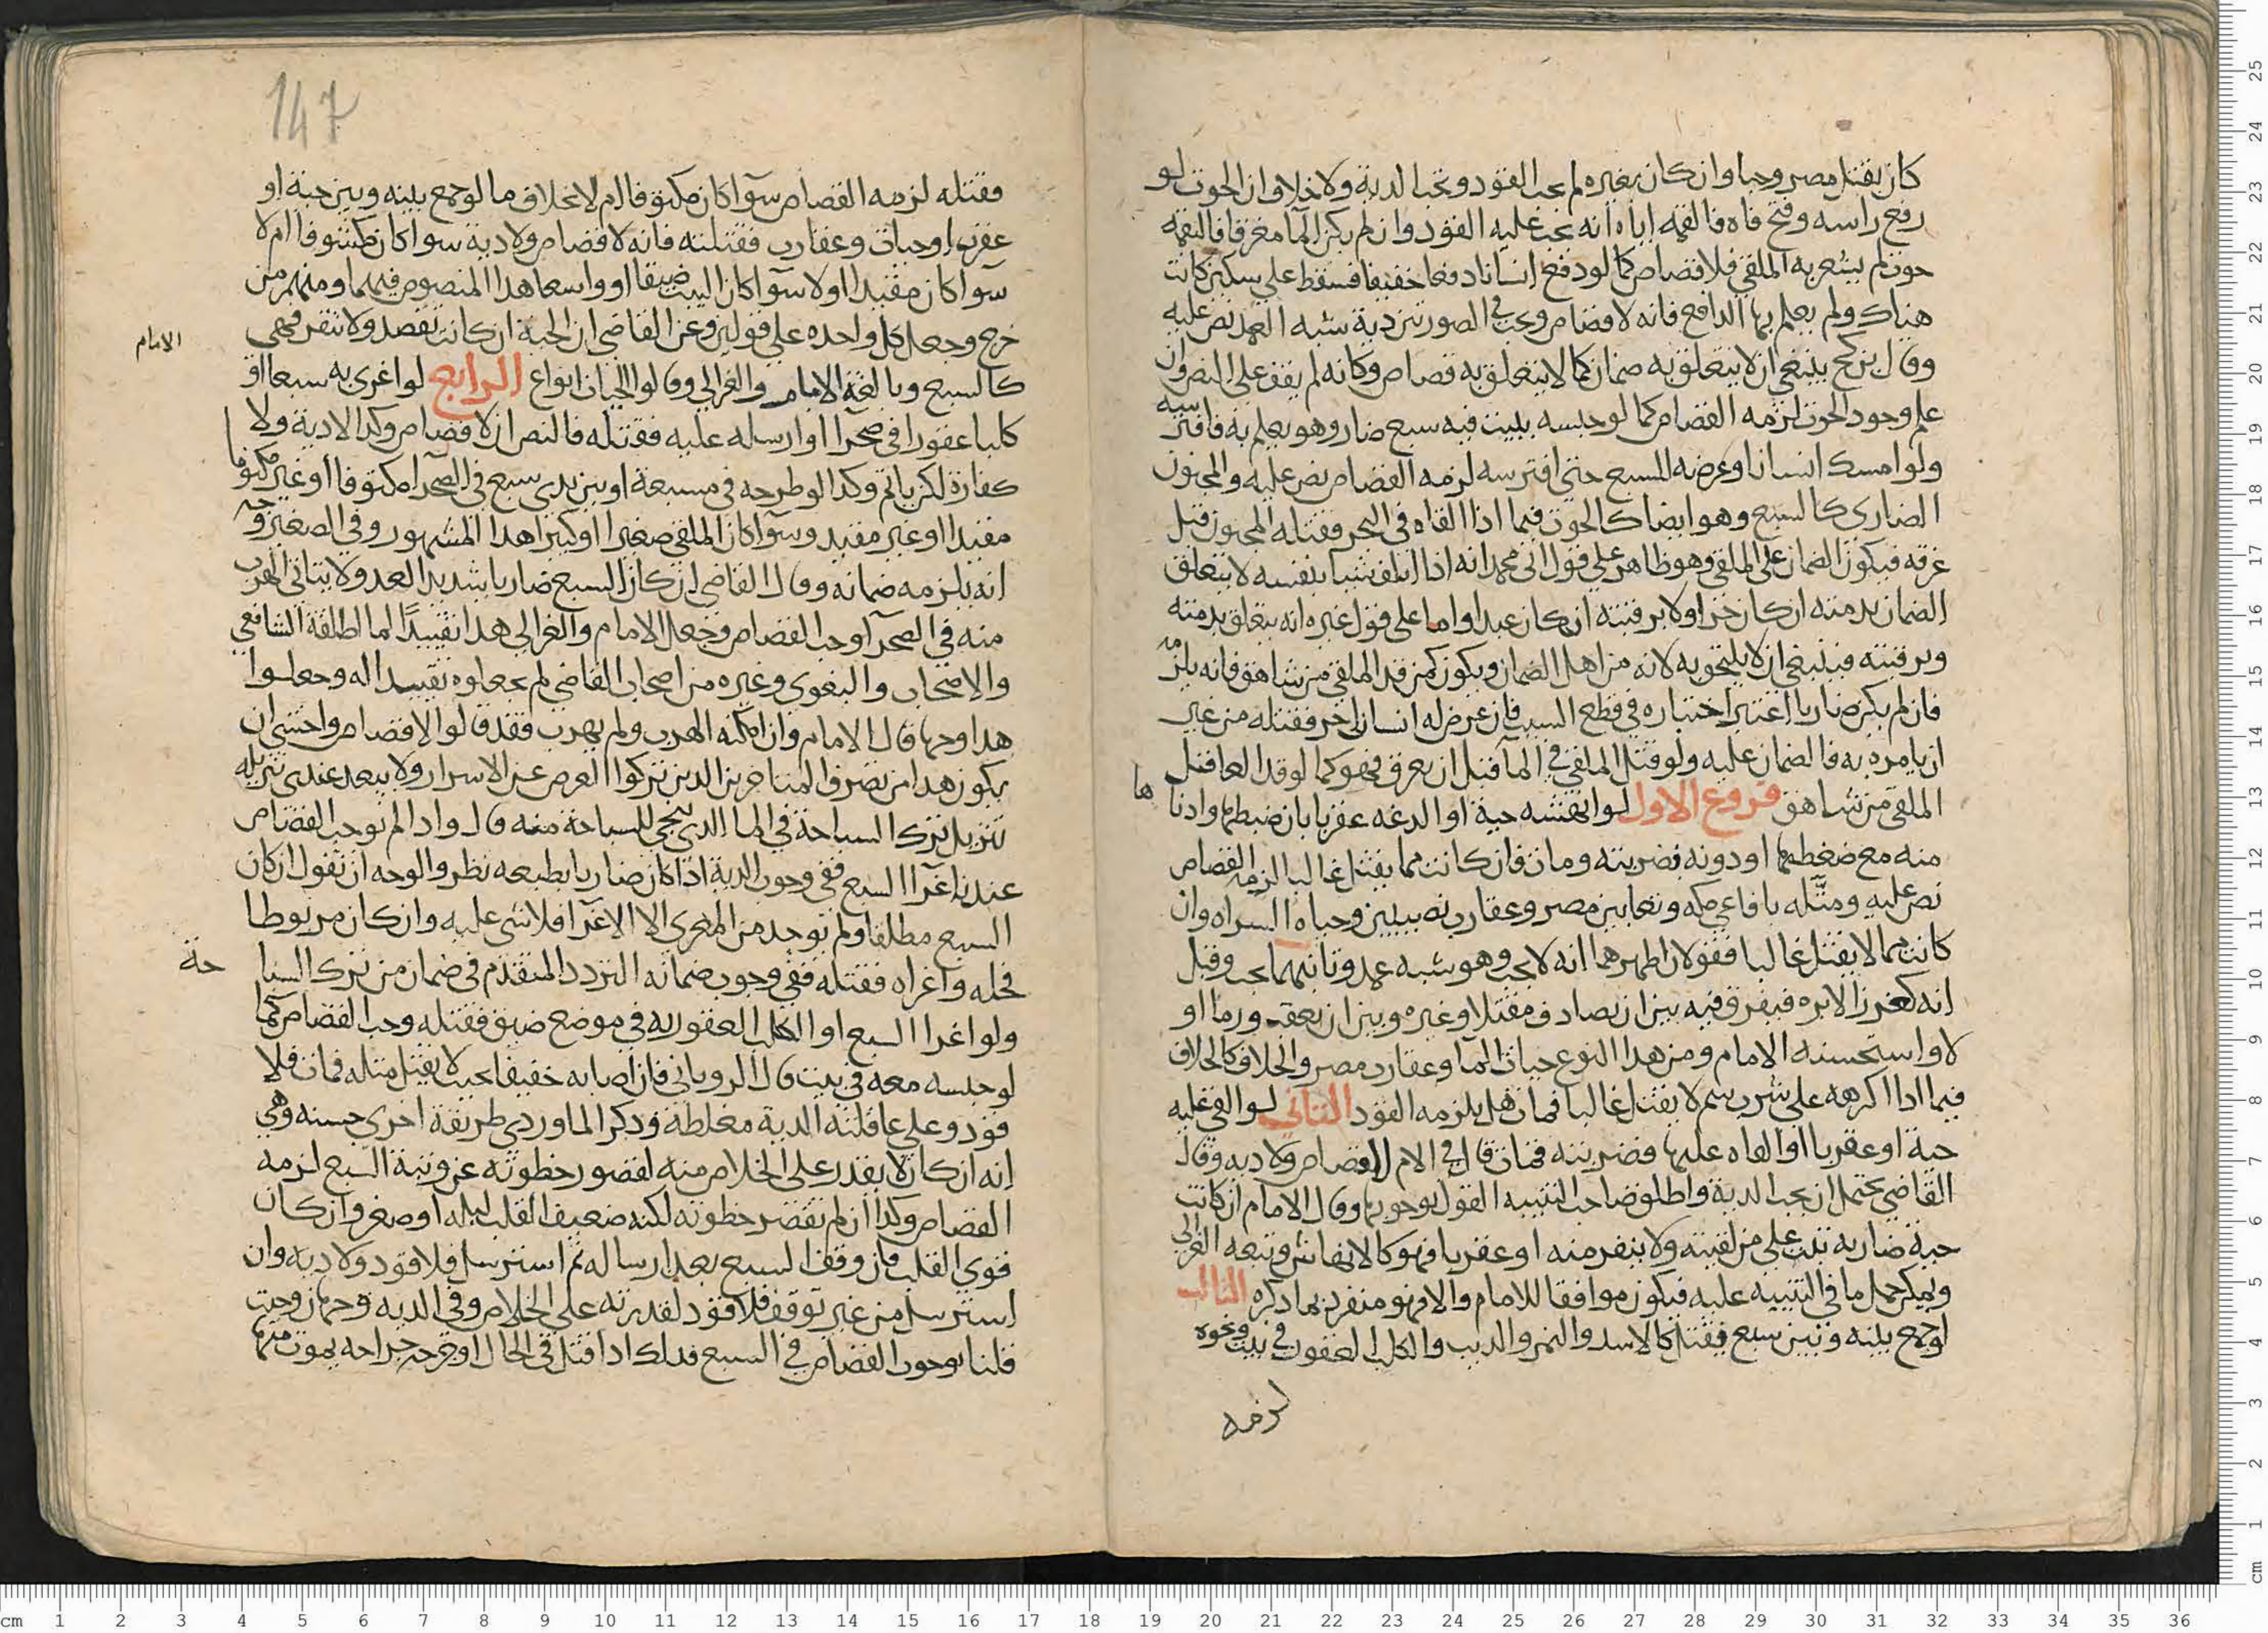 كان بقتل مصر وجبا وان كان بغيره لم يجب القود وتجب الدية ولا خلاف ان الحوت لو
رفع راسه وفتح فاه فالقمه اياه انه يجب عليه القود وان لم يكن الماء مغرقا فالتقمه
حوت لم يشعر به الملقي فلا قصاص كما لو دفع انسانا دفعا خفيفا فسقط على سكين كانت
هناك ولم يعلم بها الدافع فانه لا قصاص ويجب في الصورتين دية شبه العمد نص عليه
وقال بن كج ينبغي ان لا يتعلق به ضمان كما لا يتعلق به قصاص وكانه لم يقف على النص وان
علم وجود الحوت لزمه القصاص كما لو حبسه ببيت فيه سبع ضار وهو يعلم به فافترسه
ولو امسك انسانا وعرضه للسبع حتى افترسه لزمه القصاص نص عليه والمجنون
الضاري كالسبع وهو ايضا كالحوت فيما اذا القاه في البحر فقتله المجنون قبل
غرقه فيكون الضمان على الملقي وهو ظاهر على قول ابي محمد انه اذا اتلف شيا بنفسه لا يتعلق
الضمان بذمته ان كان حرا ولا برقبته ان كان عبدا واما على قول غيره انه يتعلق بذمته
وبرقبته فينبغي ان لا يلتحق به لانه من اهل الضمان ويكون كمن قد الملقي من شاهق فانه يلزمه
فان لم يكن ضاريا اعتبر اختياره في قطع السبب فان عرض له انسان اخر فقتله من غير
ان يامره به فالضمان عليه ولو قتل الملقي في الماء قبل ان يغرق فهو كما لو قد العا قبل
الملقي من شاهق فروع الاول لو انهشه حية او الدغه عقربا بان ضبطها وادناها
منه مع ضغطهما او دونه فضربته ومات فان كانت مما يقتل غالبا لزمه القصاص
نص عليه ومثله بافاعي مكه وثعابين مصر وعقارب نصيبين وحيات السراه وان
كانت مما لا يقتل غالبا فقولان اظهرهما انه لا يجب وهو شبه عمد وثانيهما يجب وقيل
انه كغرز الابره فيفرق فيه بين ان يصادف مقتلا وغيره وبين ان يعقب ورما او
لا واستحسنه الامام ومن هذا النوع حيات الماء وعقارب مصر والخلاف كالخلاف
فيما اذا اكرهه على شرب سم لا يقتل غالبا فمات هل يلزمه القود الثاني لو القى عليه
حية او عقربا او القاه عليها فضربته فمات قال في الام لا قصاص ولا دية وقال
القاضي يحتمل ان يجب الدية واطلق صاحب التنبيه القول بوجوبها وقال الامام ان كانت
حية ضاربه تثب على من لقيته ولا ينفر منه او عقربا فهو كالانهاش وتبعه الغزالي
ويمكن حمل ما في التنبيه عليه فيكون موافقا للامام والا فهو منفرد بما ذكره الثالث
لو جمع بينه وبين سبع يقتل كالاسد والنمر والذيب والكلب العقور في بيت ونحوه
لزمه
147
فقتله لزمه القصاص سوآ كان مكتوفا ام لا بخلاف ما لو جمع بينه وبين حية او
عقرب او حيات وعقارب فقتلته فانه لا قصاص ولا دية سوا كان مكشوفا ام لا
سوآ كان مقيدا او لا سوآ كان البيت ضيقا او واسعا هذا المنصوص فيهما ومنهم من
خرج وجعل كل واحده على قولين وعن القاضي ان الحية ان كانت تقصد ولا تنفر فهي
كالسبع وبالغه الامام والغزالي وقالوا الحيات انواع الرابع لو اغرى به سبعا او
الامام
كلبا عقورا في صحرا او ارسله عليه فقتله فالنص ان لا قصاص وكذا لا دية ولا
كفارة لكن ياثم وكذا لو طرحه في مسبعة او بين يدي سبع في الصحرا مكتوفا او غير مكتوف
مقيدا او غير مقيد وسوآ كان الملقي صغيرا او كبيرا هذا المشهور وفي الصغير وجه
انه يلزمه ضمانه وقال القاضي ان كان السبع ضاريا شديد العدو ولا يتاتى الهرب
منه في الصحرآ وجب القصاص وجعل الامام والغزالي هذا تقييدا لما اطلقه الشافعي
والاصحاب والبغوي وغيره من اصحاب القاضي لم يجعلوه تقييدا له وجعلوا
هذا وجها قال الامام وان امكنه الهرب ولم يهرب فقد قالوا لا قصاص واخشى ان
يكون هذا من تصرف المتاخرين الذين تركوا الغوص عن الاسرار ولا يبعد عندي تنزيله
تنزيل ترك السباحة في الماء الذي ينجي للسباحة منه قال واذا لم نوجب القصاص
عند اغرآ السبع ففي وجوب الدية اذا كان ضاريا بطبعه نظر والوجه ان نقول ان كان
السبع مطلقا ولم توجد من المغري الا الاغرآ فلا شي عليه وان كان مربوطا
فحله واغراه فقتله ففي وجوب ضمانه التردد المتقدم في ضمان من ترك السباحة
ولو اغرا السبع او الكلب العقور به في موضع ضيق فقتله وجب القصاص كما
لو حبسه معه في بيت قال الروياني فان اصابه خفيفا بحيث لا يقتل مثله فمات فلا
قود وعلى عاقلته الدية مغلظة وذكر الماوردي طريقة اخرى حسنه وهي
انه ان كان لا يقدر على الخلاص منه لقصور خطوته عن وثبة السبع لزمه
القصاص وكذا ان لم تقصر خطوته لكنه ضعيف القلب لبله او صغر وان كان
قوي القلب فان وقف السبع بعد ارساله ثم استرسل فلا قود ولا دية وان
استرسل من غير توقف فلا قود لقدرته على الخلاص وفي الدية وجهان وحيث
قلنا بوجوب القصاص في السبع فذلك اذا قتل في الحال او جرحه جراحه يموت منها